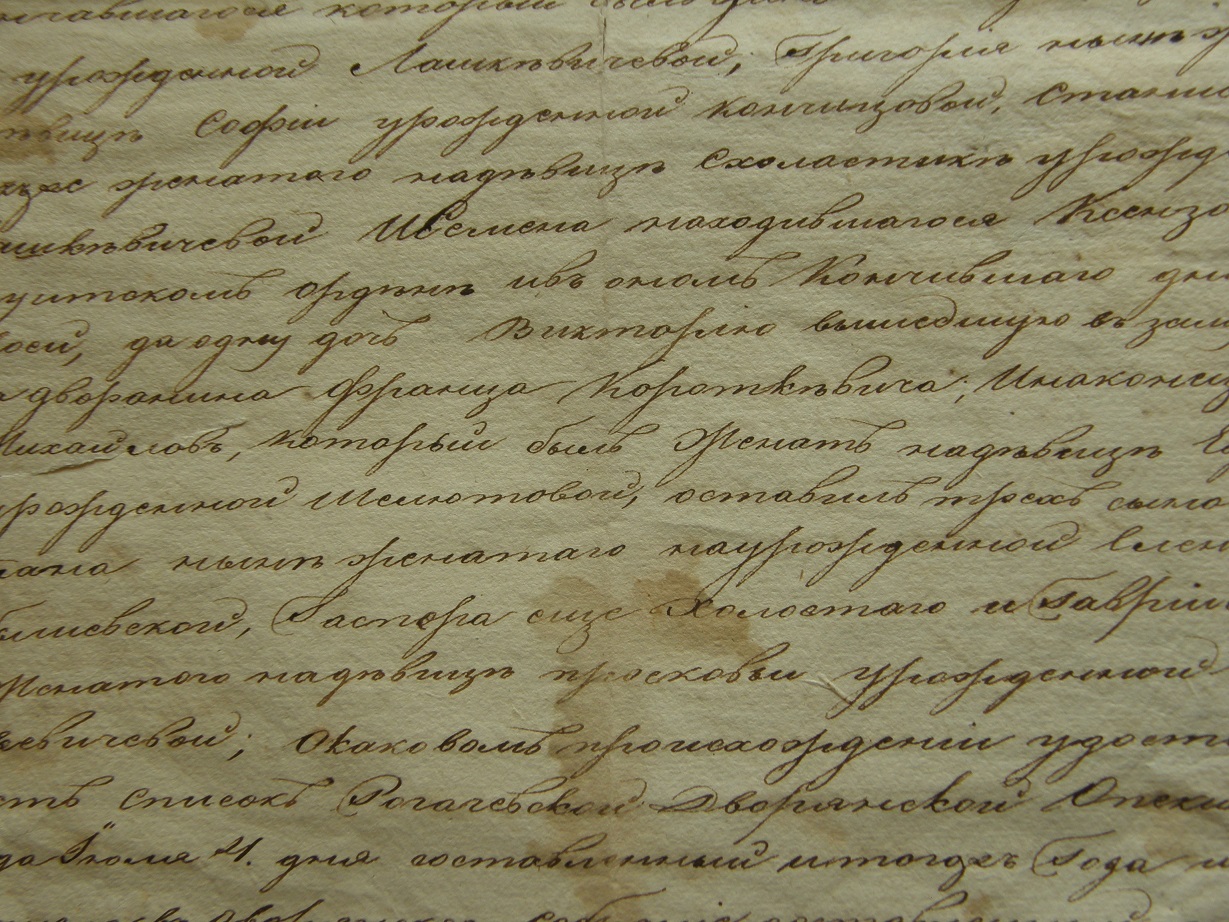 который
урожденной Лашкѣвичевой, Григорія нынѣ
Софіи урожденной Кончицовой, Стани
женатаго надѣвицѣ Схоластикѣ урожд
ашкѣвичевой Исемена находившагося Ксензо
уитскомъ орденѣ ивъ ономъ Кончившаго дни
да одну дочь Викторію вышедшую въ заму
дворанина Франца Короткѣвича; Инаконец
Михайловъ, который былъ Женатъ надѣвицѣ
рожденной Шелютовой, оставилъ трехъ сыно
нынѣ женатаго наурожденной Елен
Гаспера еще Холостаго и Гаврі
Женатого надѣвицѣ просковьи урожденной
евичевой; Окаковомъ происхожденіи удост
списокъ Рогачевской Дворянской Опеки
да Іюля 4. дня составленный итогожъ Года и